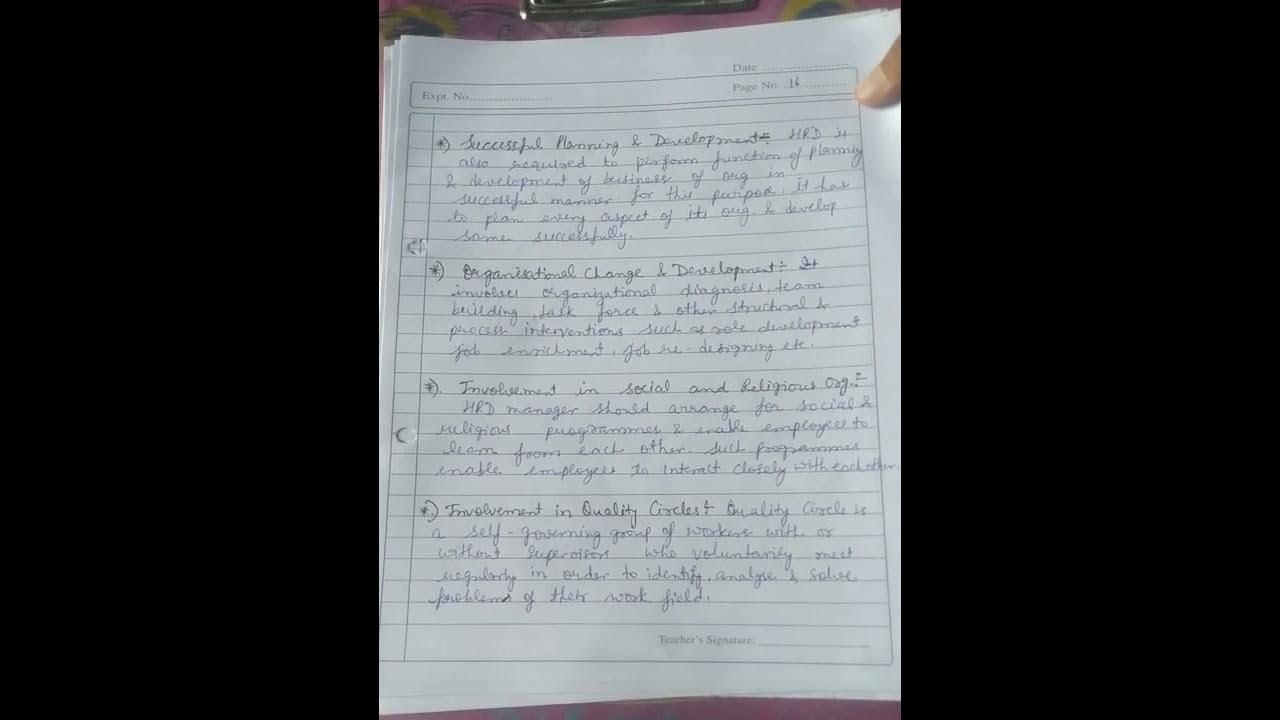 Date ....................
Page No. 16
Expt. No.....................
*) Successful Planning & Development:- HRD is
also required to perform function of planning
& development of business of org in
successful manner for this purpose, it has
to plan every aspect of its org. & develop
same successfully.
*) Organisational Change & Development:- It
involves organizational diagnosis, team
building, task force & other structural &
process interventions such as role development
job enrichment, job re-designing etc.
*). Involvement in social and Religious Org.:-
HRD manager should arrange for social &
religious programmes & enable employees to
learn from each other. Such programmes
enable employees to interact closely with each other.
*.) Involvement in Quality Circles:- Quality Circle is
a self-governing group of workers with or
without Supervisors who voluntarily meet
regularly in order to identify, analyse & solve
problems of their work field.
Teacher's Signature: ____________________